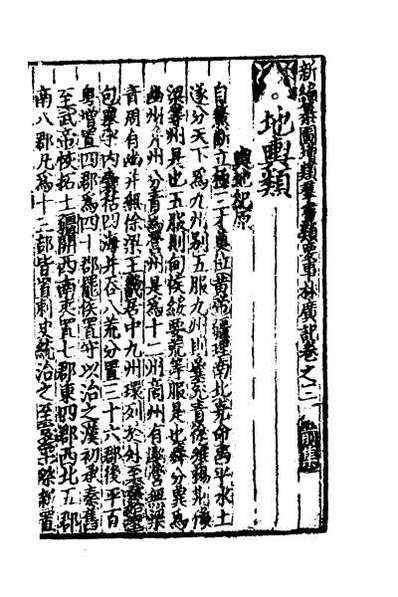 新編纂圖增類羣書類要事林廣記卷之二 前集
地輿類
輿地紀原
自鰲斷立極三才奠位黃帝疆理南北堯命禹平水土
遂分天下爲九州別五服九州則冀兖青徐雍揚荆豫
梁等州是也五服則甸侯綏要荒等服是也舜分冀爲
幽州并州分青爲營州是爲十二州商州有幽營無梁
青周有幽并無徐梁王畿居中九州環列於外至秦
包舉宇內囊括四海并吞八荒分置三十六郡後平百
粤增置四郡爲四十郡罷侯置守以治之漢初承秦舊
至武帝恢拓土疆開西南夷置七郡東四郡西北五郡
南八郡凡爲十二部皆置刺史統治之至餘新置